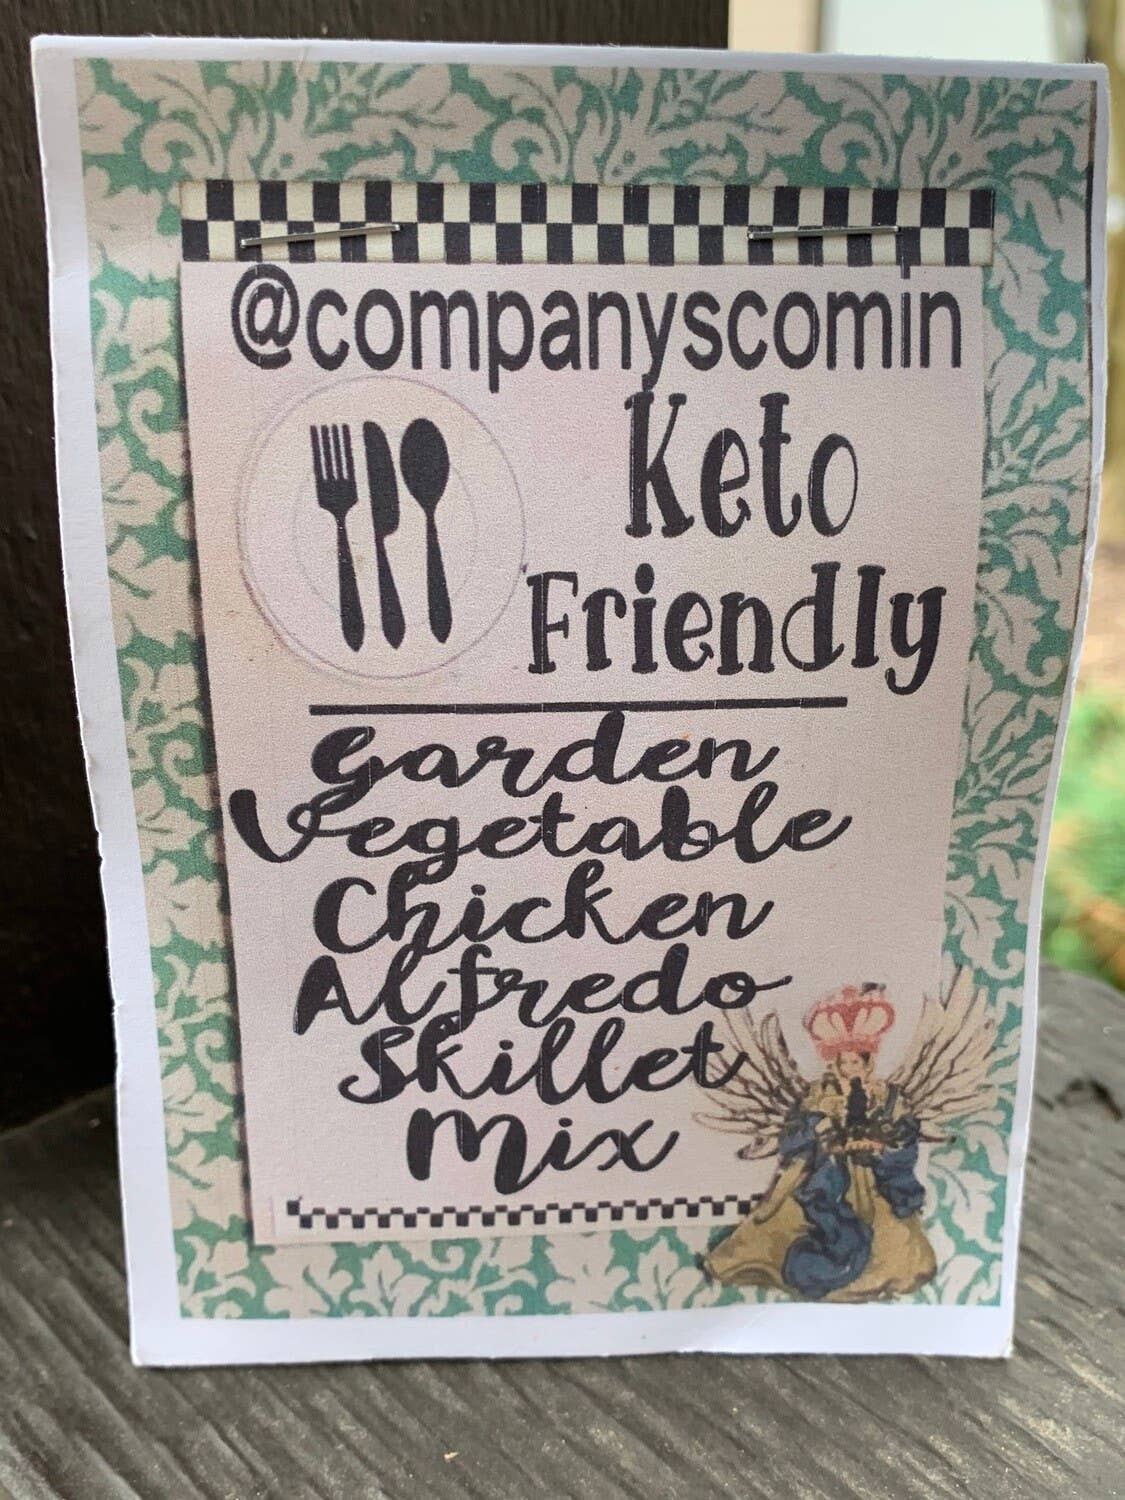 @companyscomin
Keto
Friendly
Garden
Vegetable
Chicken
Alfredo
Skillet
Mix